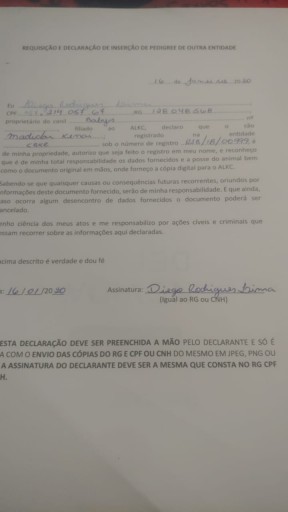 REQUISIÇÃO E DECLARAÇÃO DE INSERÇÃO DE PEDIGREE DE OUTRA ENTIDADE
16 de
Eu Diego Rodrigues
CPF RG
proprietário do canil
filiado ao ALKC, declaro que o cão
registrado na entidade
sob o número de registro
de minha propriedade, autorizo que seja feito o registro em meu nome, e reconheço
que é de minha total responsabilidade os dados fornecidos e a posse do animal bem
como o documento original em mãos, onde forneço a cópia digital para o ALKC.
Sabendo se que quaisquer causas ou consequências futuras recorrentes, oriundos por
informações deste documento fornecido, serão de minha responsabilidade. E que ainda,
caso ocorra algum desencontro de dados fornecidos o documento poderá ser
cancelado.
enho ciência dos meus atos e me responsabilizo por ações cíveis e criminais que
ossam recorrer sobre as informações aqui declaradas.
cima descrito é verdade e dou fé.
16/01/2020 Assinatura: Diego Rodrigues
(igual ao RG ou CNH)
ESTA DECLARAÇÃO DEVE SER PREENCHIDA A MÃO PELO DECLARANTE E SÓ É
A COM O ENVIO DAS CÓPIAS DO RG E CPF OU CNH DO MESMO EM JPEG, PNG OU
A ASSINATURA DO DECLARANTE DEVE SER A MESMA QUE CONSTA NO RG CPF
H.